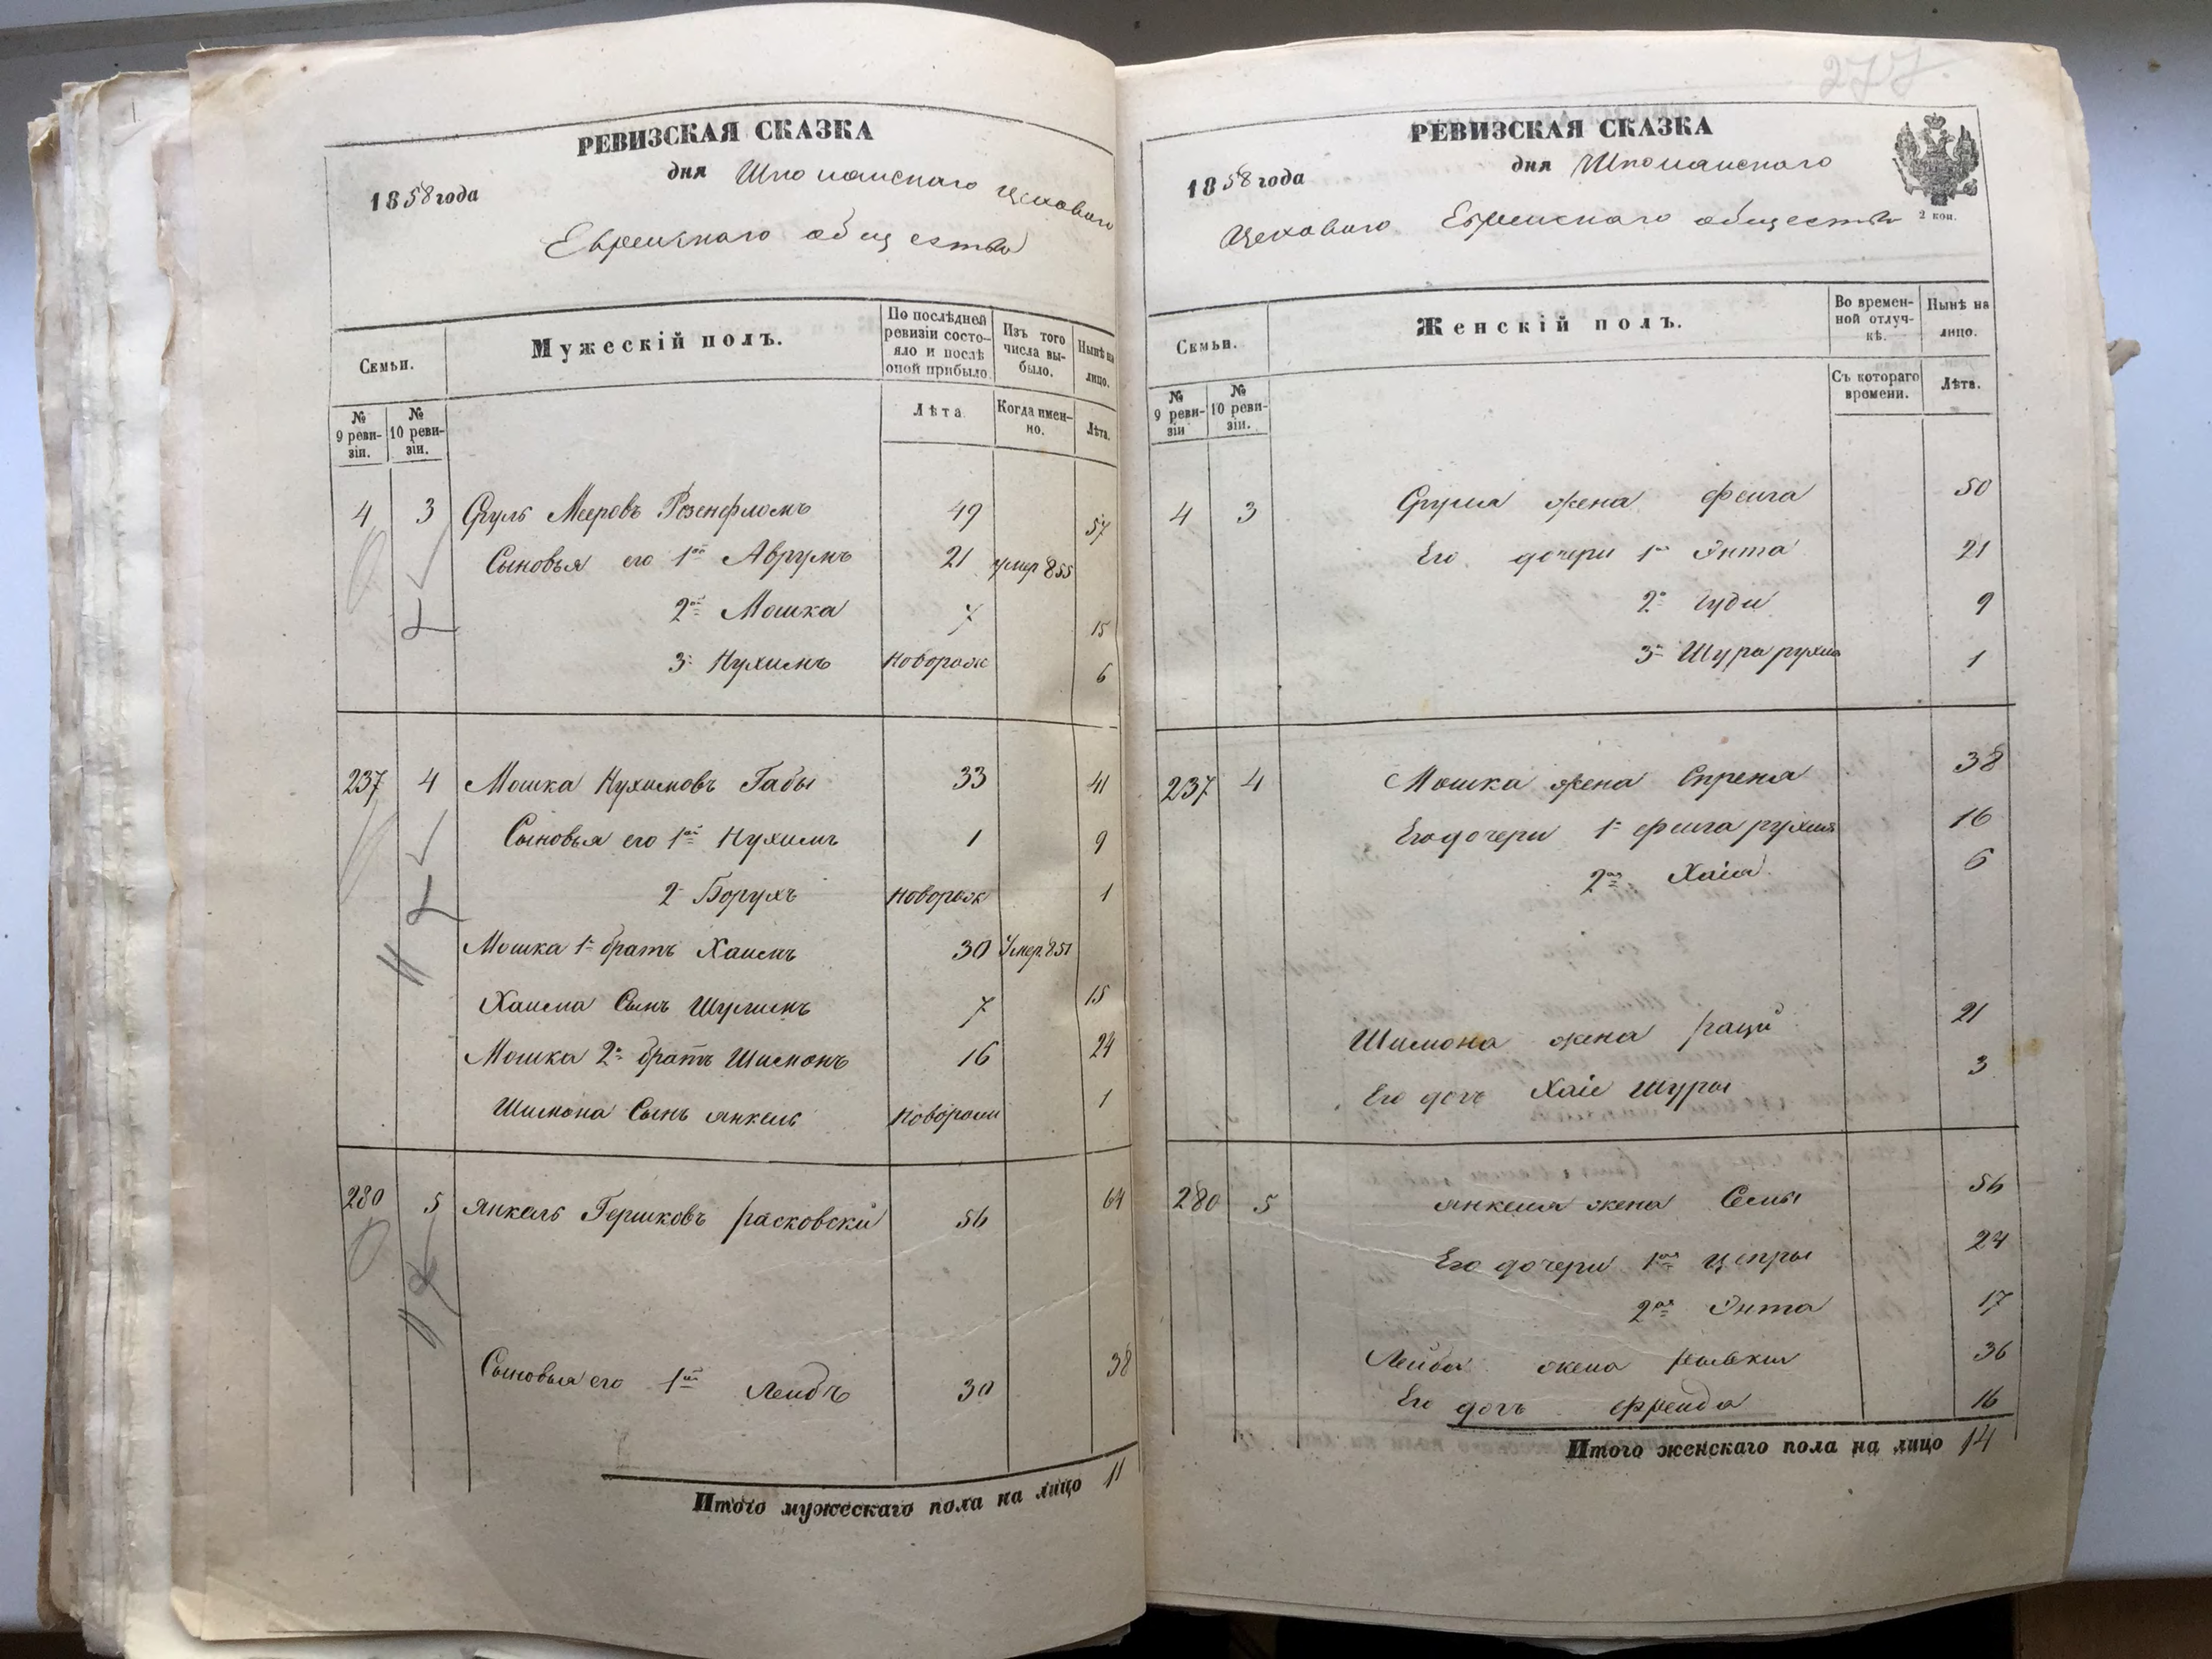 РЕВИЗСКАЯ СКАЗКА
1858 года дня Шполянскаго Цеховаго
Еврейскаго общества
Семьи.
Мужескій полъ.
По послѣдней ревизіи состояло и послѣ оной прибыло.
Изъ того числа выбыло.
Нынѣ на лицо.
№ 9 ревизіи.
№ 10 ревизіи.
Лѣта
Когда именно.
Лѣта.
4 3 Сруль Мееровъ 49 57
Сыновья его 1й Аврумъ 21 умер 855
2й Мошка 7 15
3 Нухимъ новорож 6
237 4 Мошка Нухимовъ Габы 33 41
Сыновья его 1й Нухимъ 1 9
2 Борухъ новорож 1
Мошка 1 братъ Хаимъ 30 Умер. 851
Хаима Сынъ Шулимъ 7 15
Мошка 2й братъ Шимонъ 16 24
Шимона Сынъ Янкель новорож 1
280 5 Янкель Гершковъ Расковскій 56 64
Сыновья его 1й Лейбъ 30 38
Итого мужескаго пола на лицо 11
277
РЕВИЗСКАЯ СКАЗКА
1858 года дня Шполянскаго
Цеховаго Еврейскаго общества
2 коп.
Семьи.
Женскій полъ.
Во временной отлучкѣ.
Нынѣ на лицо.
№ 9 ревизіи
№ 10 ревизіи.
Съ котораго времени.
Лѣта.
4 3 Сруля жена Фейга 50
Его дочери 1я Энта 21
2я 9
3я Шура рухля 1
237 4 Мошка жена Спреня 38
Его дочери 1я фейга рухля 16
2ая Хаія 6
Шимона жена 21
Его дочь Хаіе Шуры 3
280 5 Янкеля жена Семы 56
Его дочери 1ая Ципры 24
2ая Энта 17
Лейба жена Ривки 36
Его дочь Фрейда 16
Итого женскаго пола на лицо 14